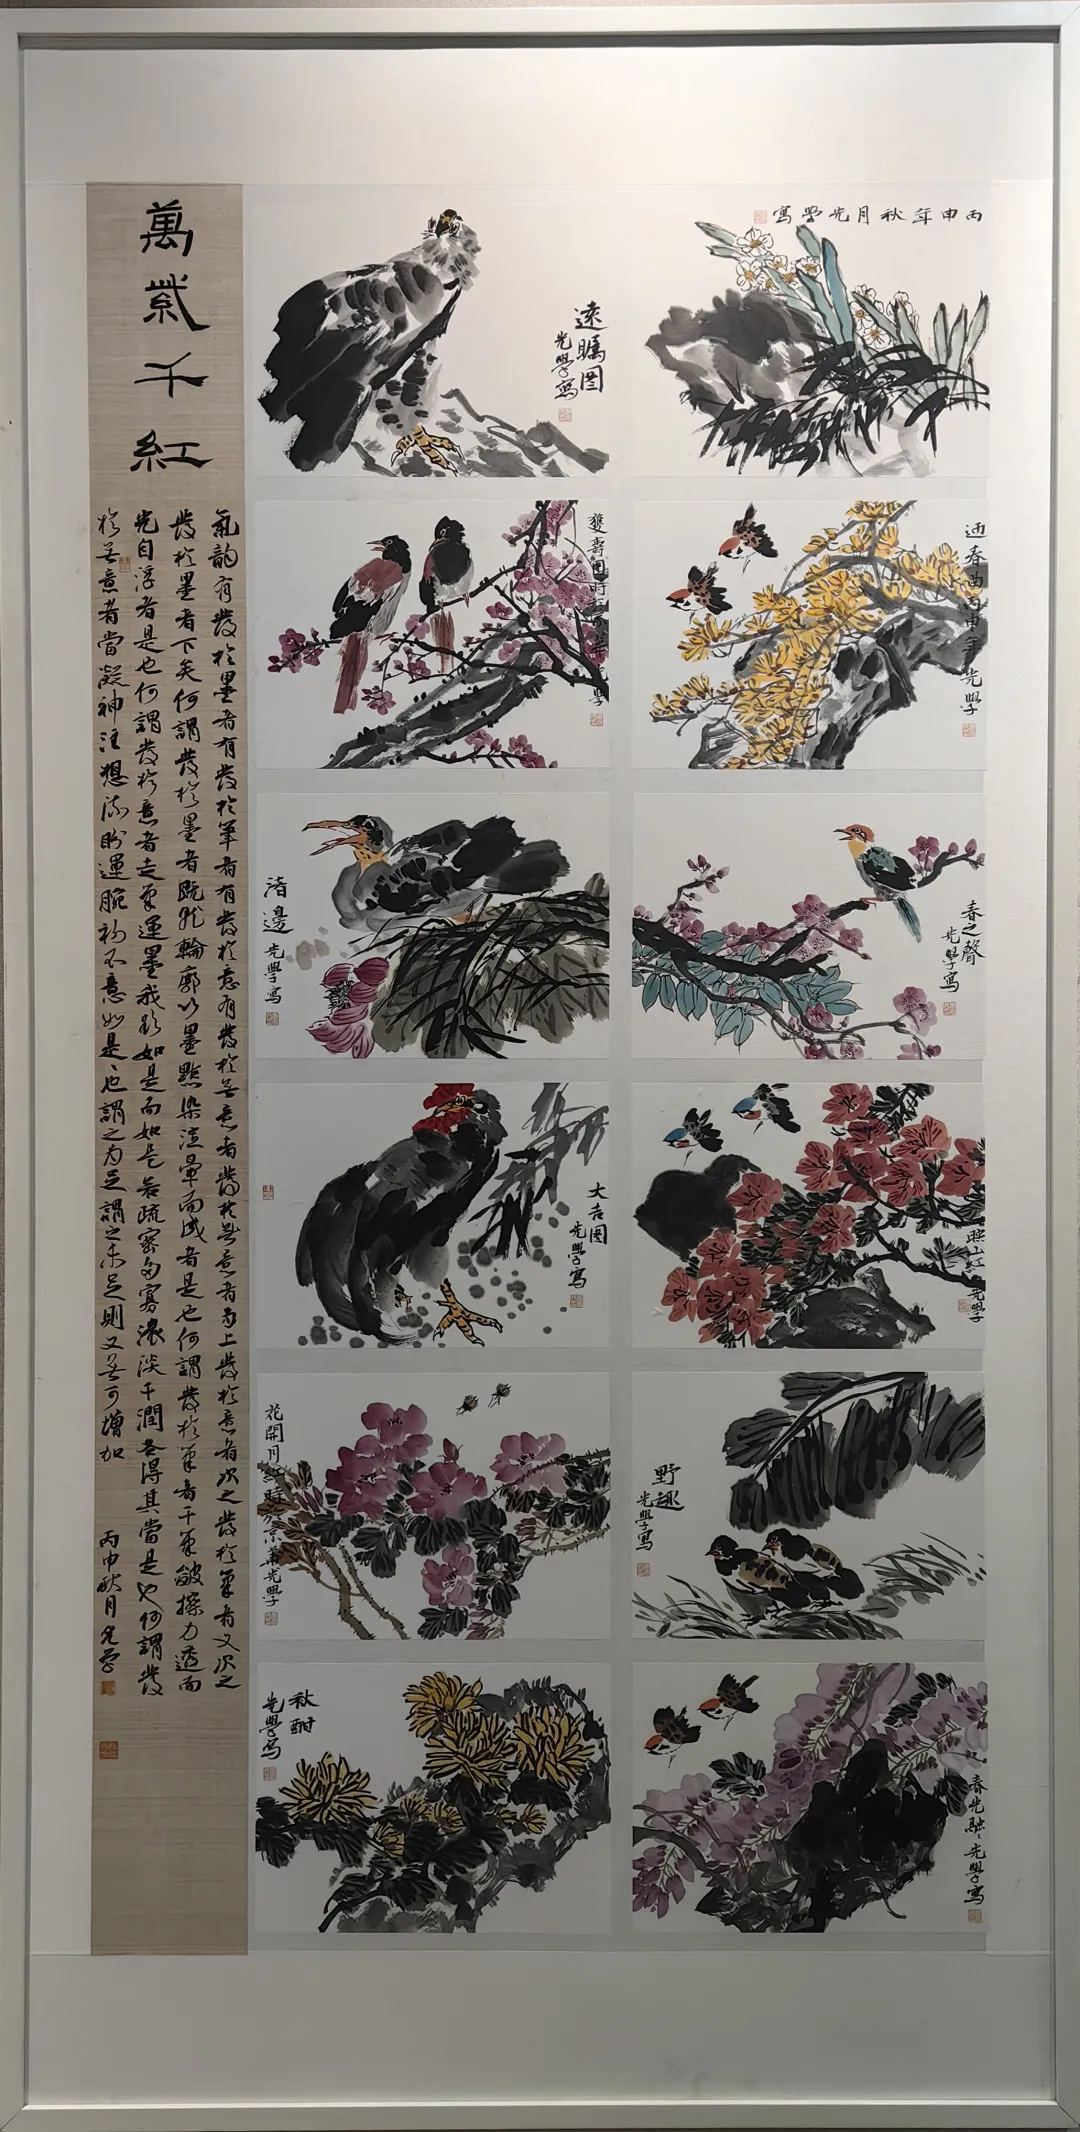 萬紫千紅
氣韵有發於墨者有發於筆者有發於意有發於無意者發於無意者為上發於意者次之發於筆者又次之
發於墨者下矣何謂發於墨者既就輪廓以墨點染渲暈而成者是也何謂發於筆者干筆皴擦力透而
光自浮者是也何謂發於意者走筆運墨我欲如是而如是若疏密多寡濃淡干潤各得其當是也何謂發
於無意者當凝神注想流盼運腕初不意如是而如是也謂之為足謂之未足則又無可增加
丙申秋月光學
丙申年秋月光學寫
遠瞩图
光學寫
雙壽图
光學
迎春曲丙申年光學
渚邊
光學寫
春之聲
光學寫
大吉图
光學寫
映山紅光學
花開月紅時於京華光學
野趣
光學寫
秋酣
光學写
春光融融光學寫